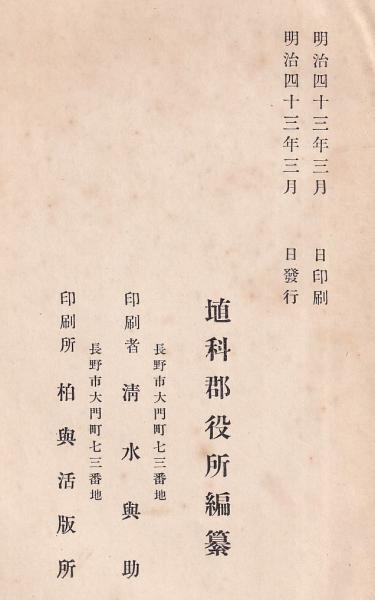 明治四十三年三月 日印刷
明治四十三年三月 日發行
埴科郡役所編纂
長野市大門町七三番地
印刷者 淸水與助
長野市大門町七三番地
印刷所 柏與活版所